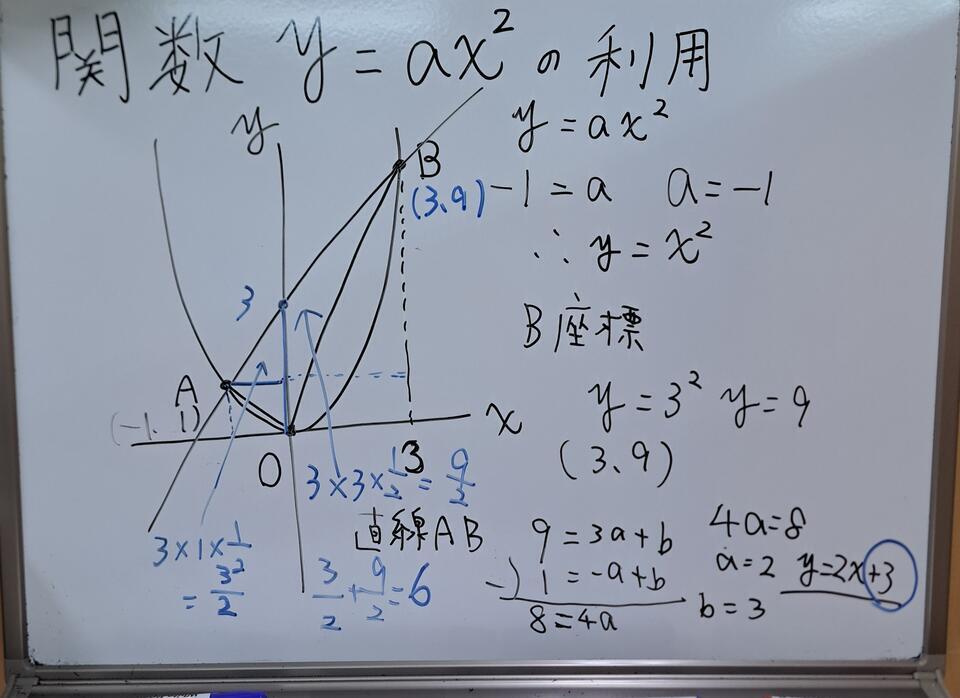 関数 y=ax²の利用
y
B
(3、9)
3
A
(-1、1)
O
3
x
3×3×1/2=9/2
3×1×1/2
=3/2
3/2+9/2=6
y=ax²
-1=a a=-1
∴y=x²
B座標
y=3² y=9
(3、9)
直線AB
9=3a+b
-) 1=-a+b
8=4a
4a=8
a=2
b=3
y=2x+3